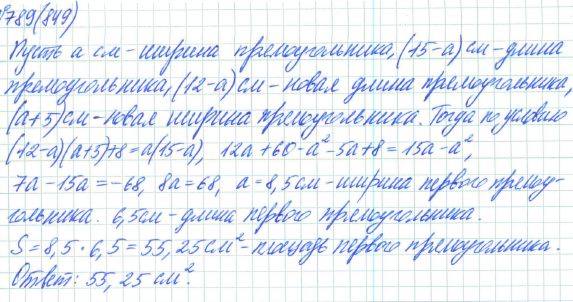 №789(849)
Пусть а см-ширина прямоугольника, (15-а) см-длина
прямоугольника, (12-а) см-новая длина прямоугольника,
(а+5) см-новая ширина прямоугольника. Тогда по условию
(12-а)(а+5)+8=а(15-а), 12а+60-а²-5а+8=15а-а²,
7а-15а=-68, 8а=68, а=8,5см-ширина первого прямоу-
гольника. 6,5см-длина первого прямоугольника.
S=8,5·6,5=55,25см²-площадь первого прямоугольника.
Ответ: 55,25 см².